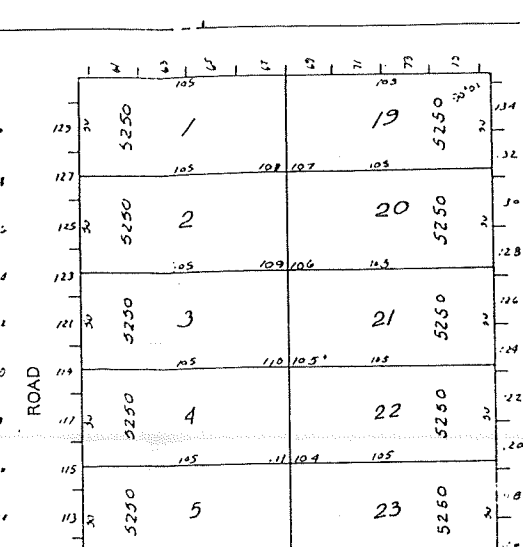 61 63 65 67 69 71 73 75
105 105
129 50 5250 1 19 5250 50 134
132
127 105 108 107 105
125 50 5250 2 20 5250 130
128
123 105 109 106 105
126
121 50 5250 3 21 5250 50
124
119 105 110 105 105
ROAD
122
117 50 5250 4 22 5250 50
120
115 105 111 104 105
118
113 50 5250 5 23 5250